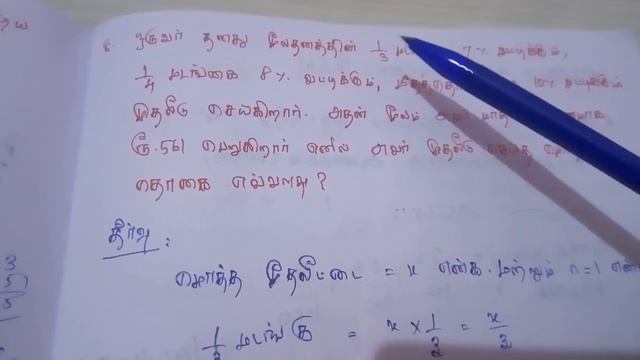 8. ஒருவர் தனது மூலதனத்தின் 1/3 7% வட்டிக்கும்,
1/4 மடங்கை 8% வட்டிக்கும், 10% வட்டிக்கும்
முதலீடு செய்கிறார். அதன் மூலம்
ரூ.561 பெறுகிறார் எனில் அவர் முதலீடு செய்த
தொகை எவ்வளவு?
தீர்வு :
மொத்த முதலீட்டை = x என்க. மற்றும் n=1
1/3 மடங்கு = x × 1/3 = x/3
3
5
5